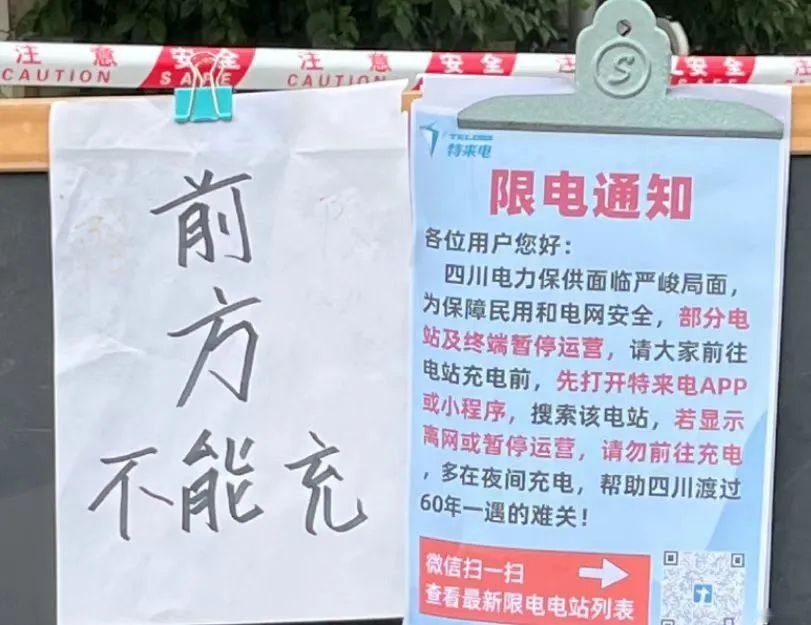 注意 安全 注意 安全 注意 安全
CAUTION SAFE CAUTION SAFE
前
方
不能充
TELD
特来电
限电通知
各位用户您好：
四川电力保供面临严峻局面，
为保障民用和电网安全，部分电
站及终端暂停运营，请大家前往
电站充电前，先打开特来电APP
或小程序，搜索该电站，若显示
离网或暂停运营，请勿前往充电
，多在夜间充电，帮助四川渡过
60年一遇的难关！
微信扫一扫
查看最新限电电站列表